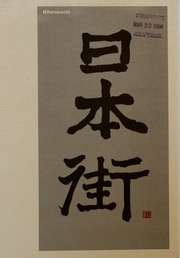 Nihonmachi
MAR 22 1996
日
本
街